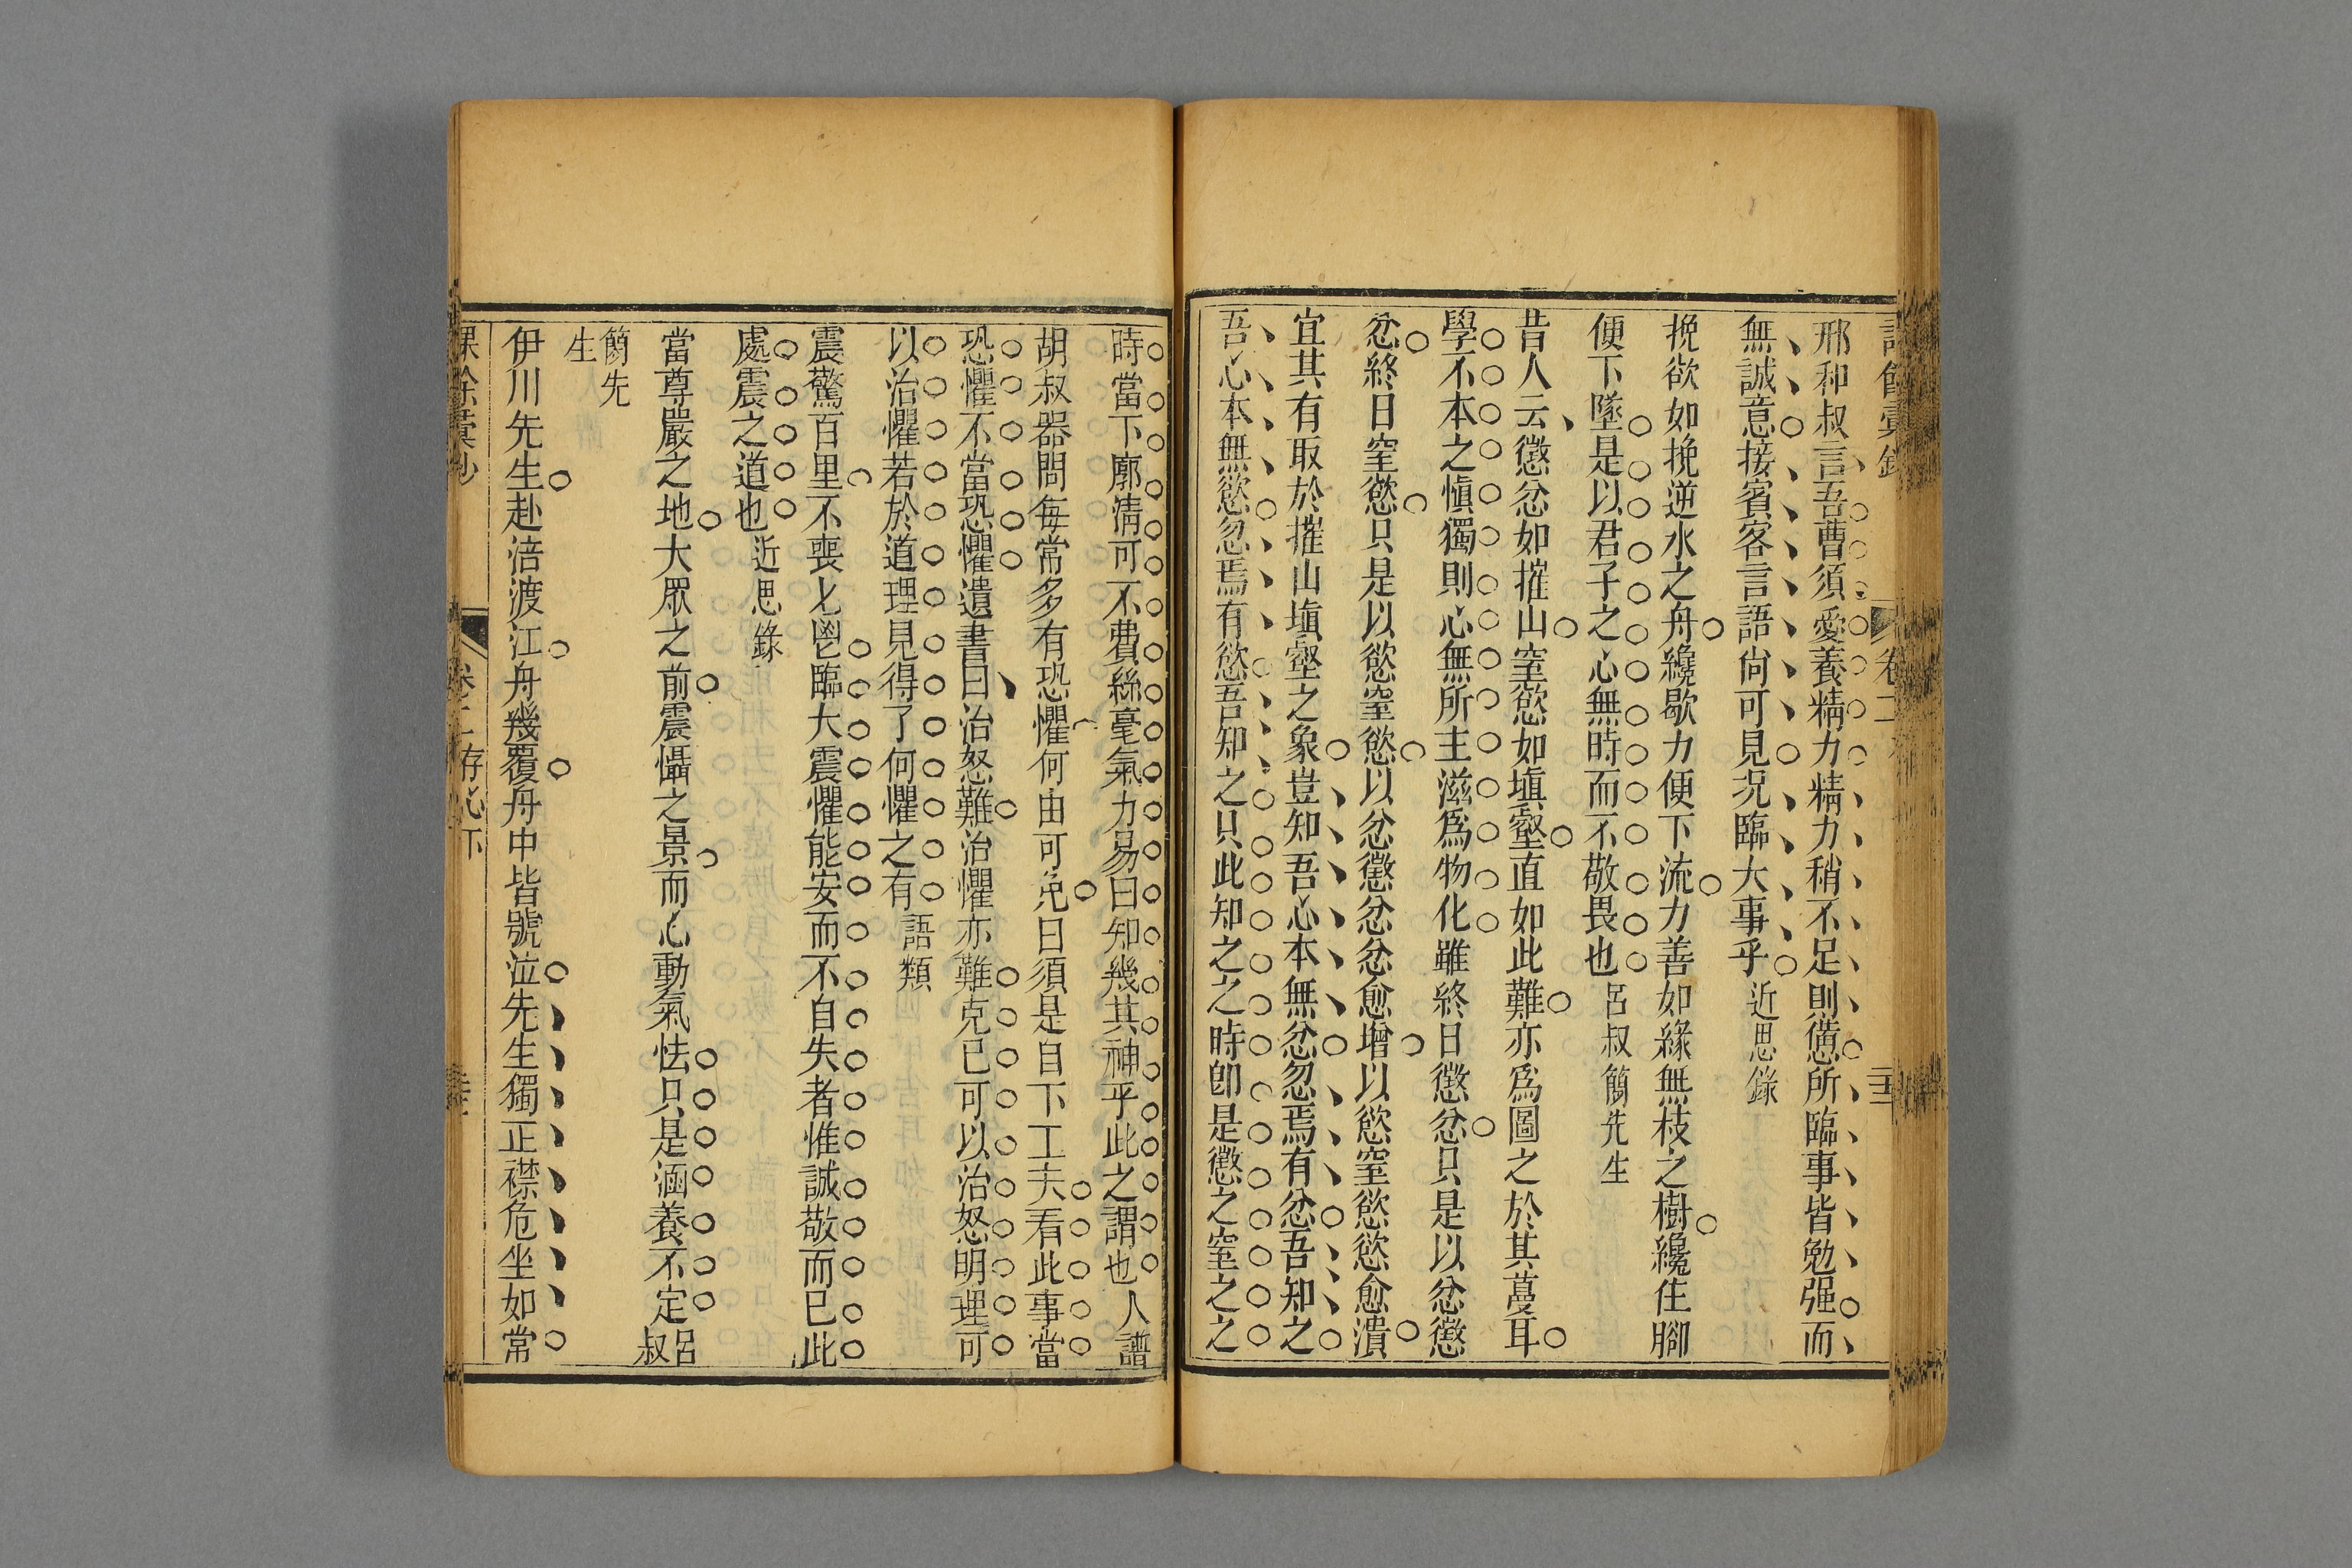 卷二
邢和叔言吾曹須愛養精力精力稍不足則憊所臨事皆勉强而
無誠意接賓客言語尙可見況臨大事乎近思錄
挽欲如挽逆水之舟纔歇力便下流力善如緣無枝之樹纔住腳
便下墜是以君子之心無時而不敬畏也呂叔簡先生
昔人云懲忿如摧山窒慾如塡壑直如此難亦爲圖之於其蔓耳
學不本之愼獨則心無所主滋爲物化雖終日懲忿只是以忿懲
忿終日窒慾只是以慾窒慾以忿懲忿忿愈增以慾窒慾慾愈潰
宜其有取於摧山塡壑之象豈知吾心本無忿忽焉有忿吾知之
吾心本無慾忽焉有慾吾知之只此知之之時卽是懲之窒之之
時當下廓淸可不費絲毫氣力易曰知幾其神乎此之謂也人譜
胡叔器問每常多有恐懼何由可免曰須是自下工夫看此事當
恐懼不當恐懼遺書曰治怒難治懼亦難克已可以治怒明理可
以治懼若於道理見得了何懼之有語類
震驚百里不喪匕鬯臨大震懼能安而不自失者惟誠敬而已此
處震之道也近思錄
當尊嚴之地大眾之前震懾之景而心動氣怯只是涵養不定呂叔
簡先生
伊川先生赴涪渡江舟幾覆舟中皆號泣先生獨正襟危坐如常
課餘彙鈔
卷二存心下